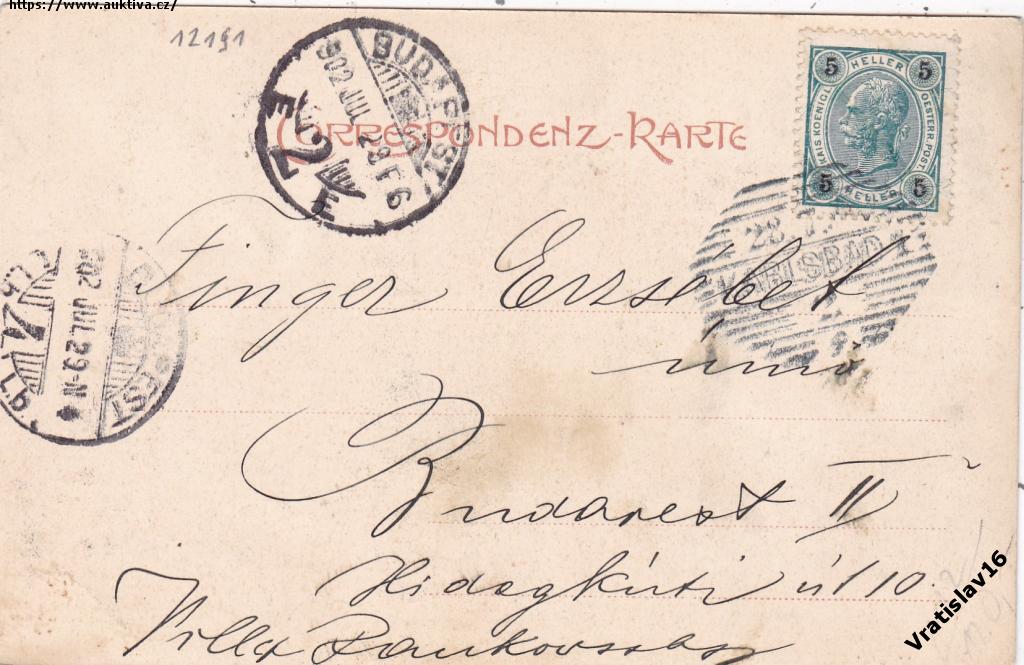 https://www.auktiva.cz/
12191
BUDAPEST
902 JUL 29
CORRESPONDENZ-KARTE
5 HELLER 5
KAIS KOENIGL OESTERR. POST
5 HELLER 5
28
KARLSBAD 1
BUDAPEST
902 JUL 29-N
Finger Erzsébet
Budapest II
Hidegkúti út 10
Villa
Vratislav16